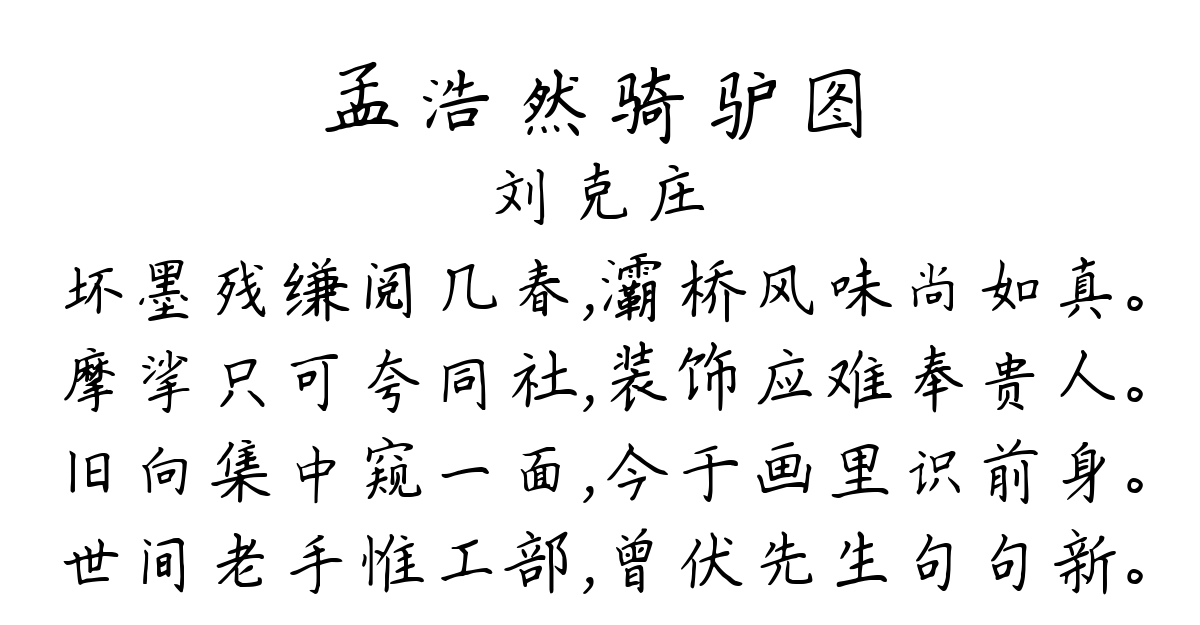 孟浩然骑驴图
刘克庄
坏墨残缣阅几春,灞桥风味尚如真。
摩挲只可夸同社,装饰应难奉贵人。
旧向集中窥一面,今于画里识前身。
世间老手惟工部,曾伏先生句句新。